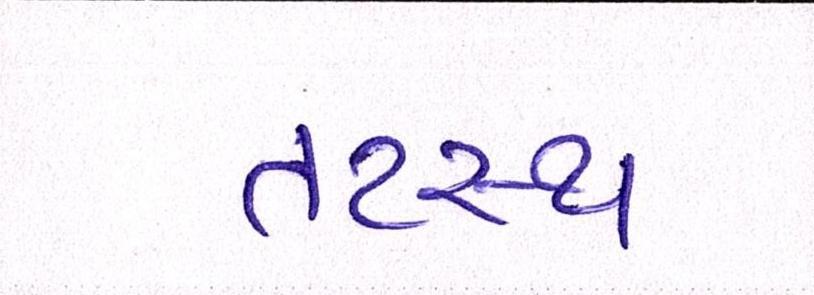 તટસ્થ